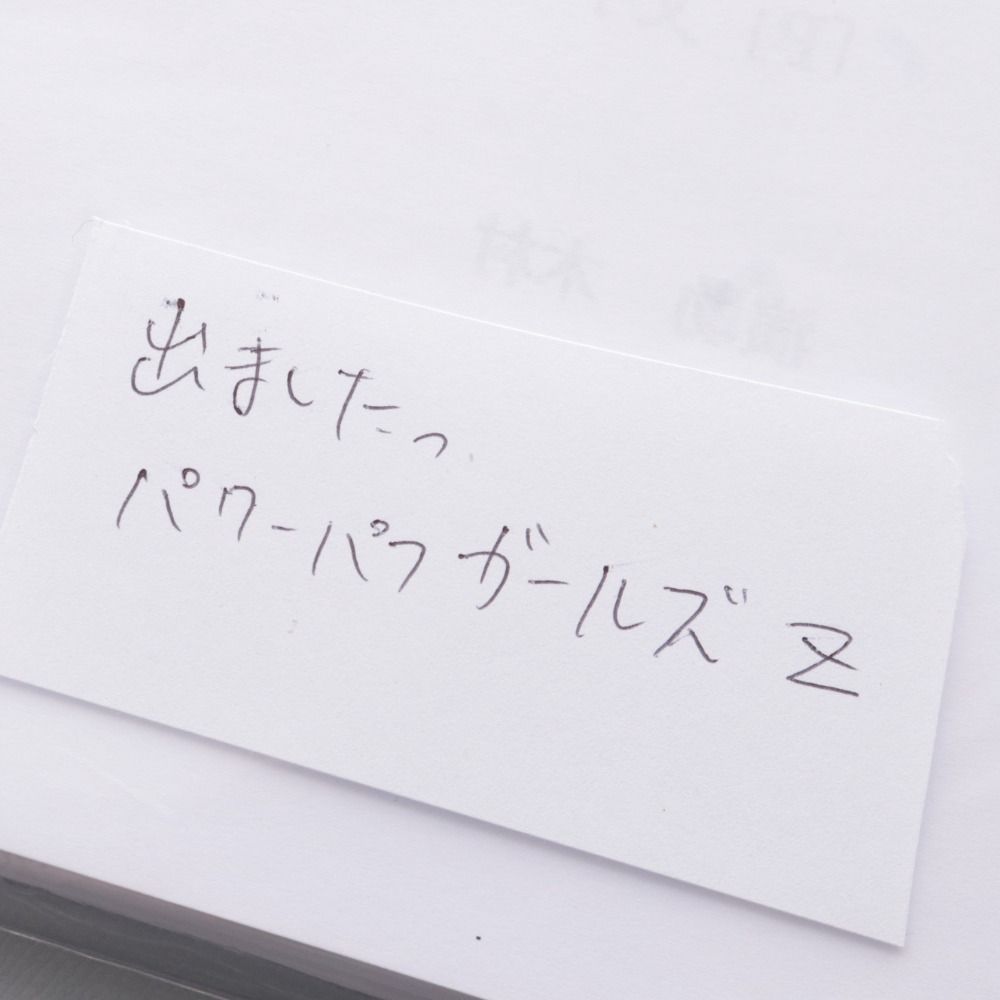 出ましたっ
パワーパフガールズ Z